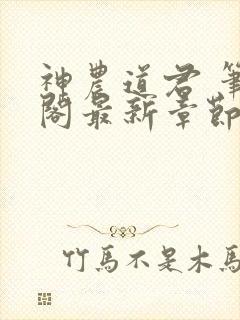 神農道君 筆
閣最新章節
竹馬不是木馬